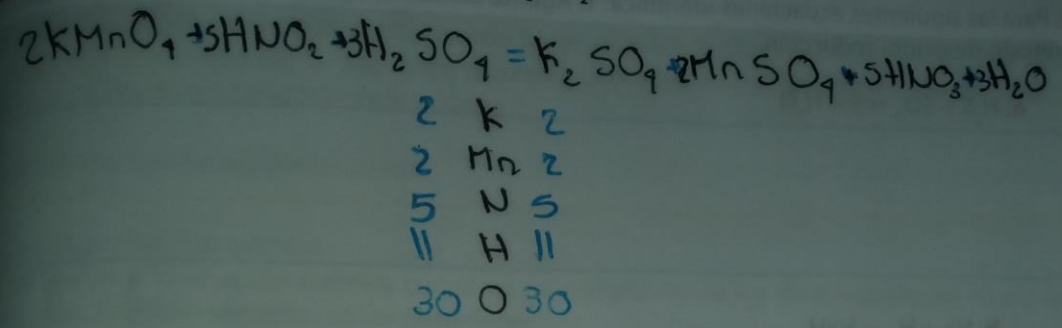 2KMnO₄ + 5HNO₂ + 3H₂SO₄ = K₂SO₄ + 2MnSO₄ + 5HNO₃ + 3H₂O
2 K 2
2 Mn 2
5 N 5
11 H 11
30 O 30